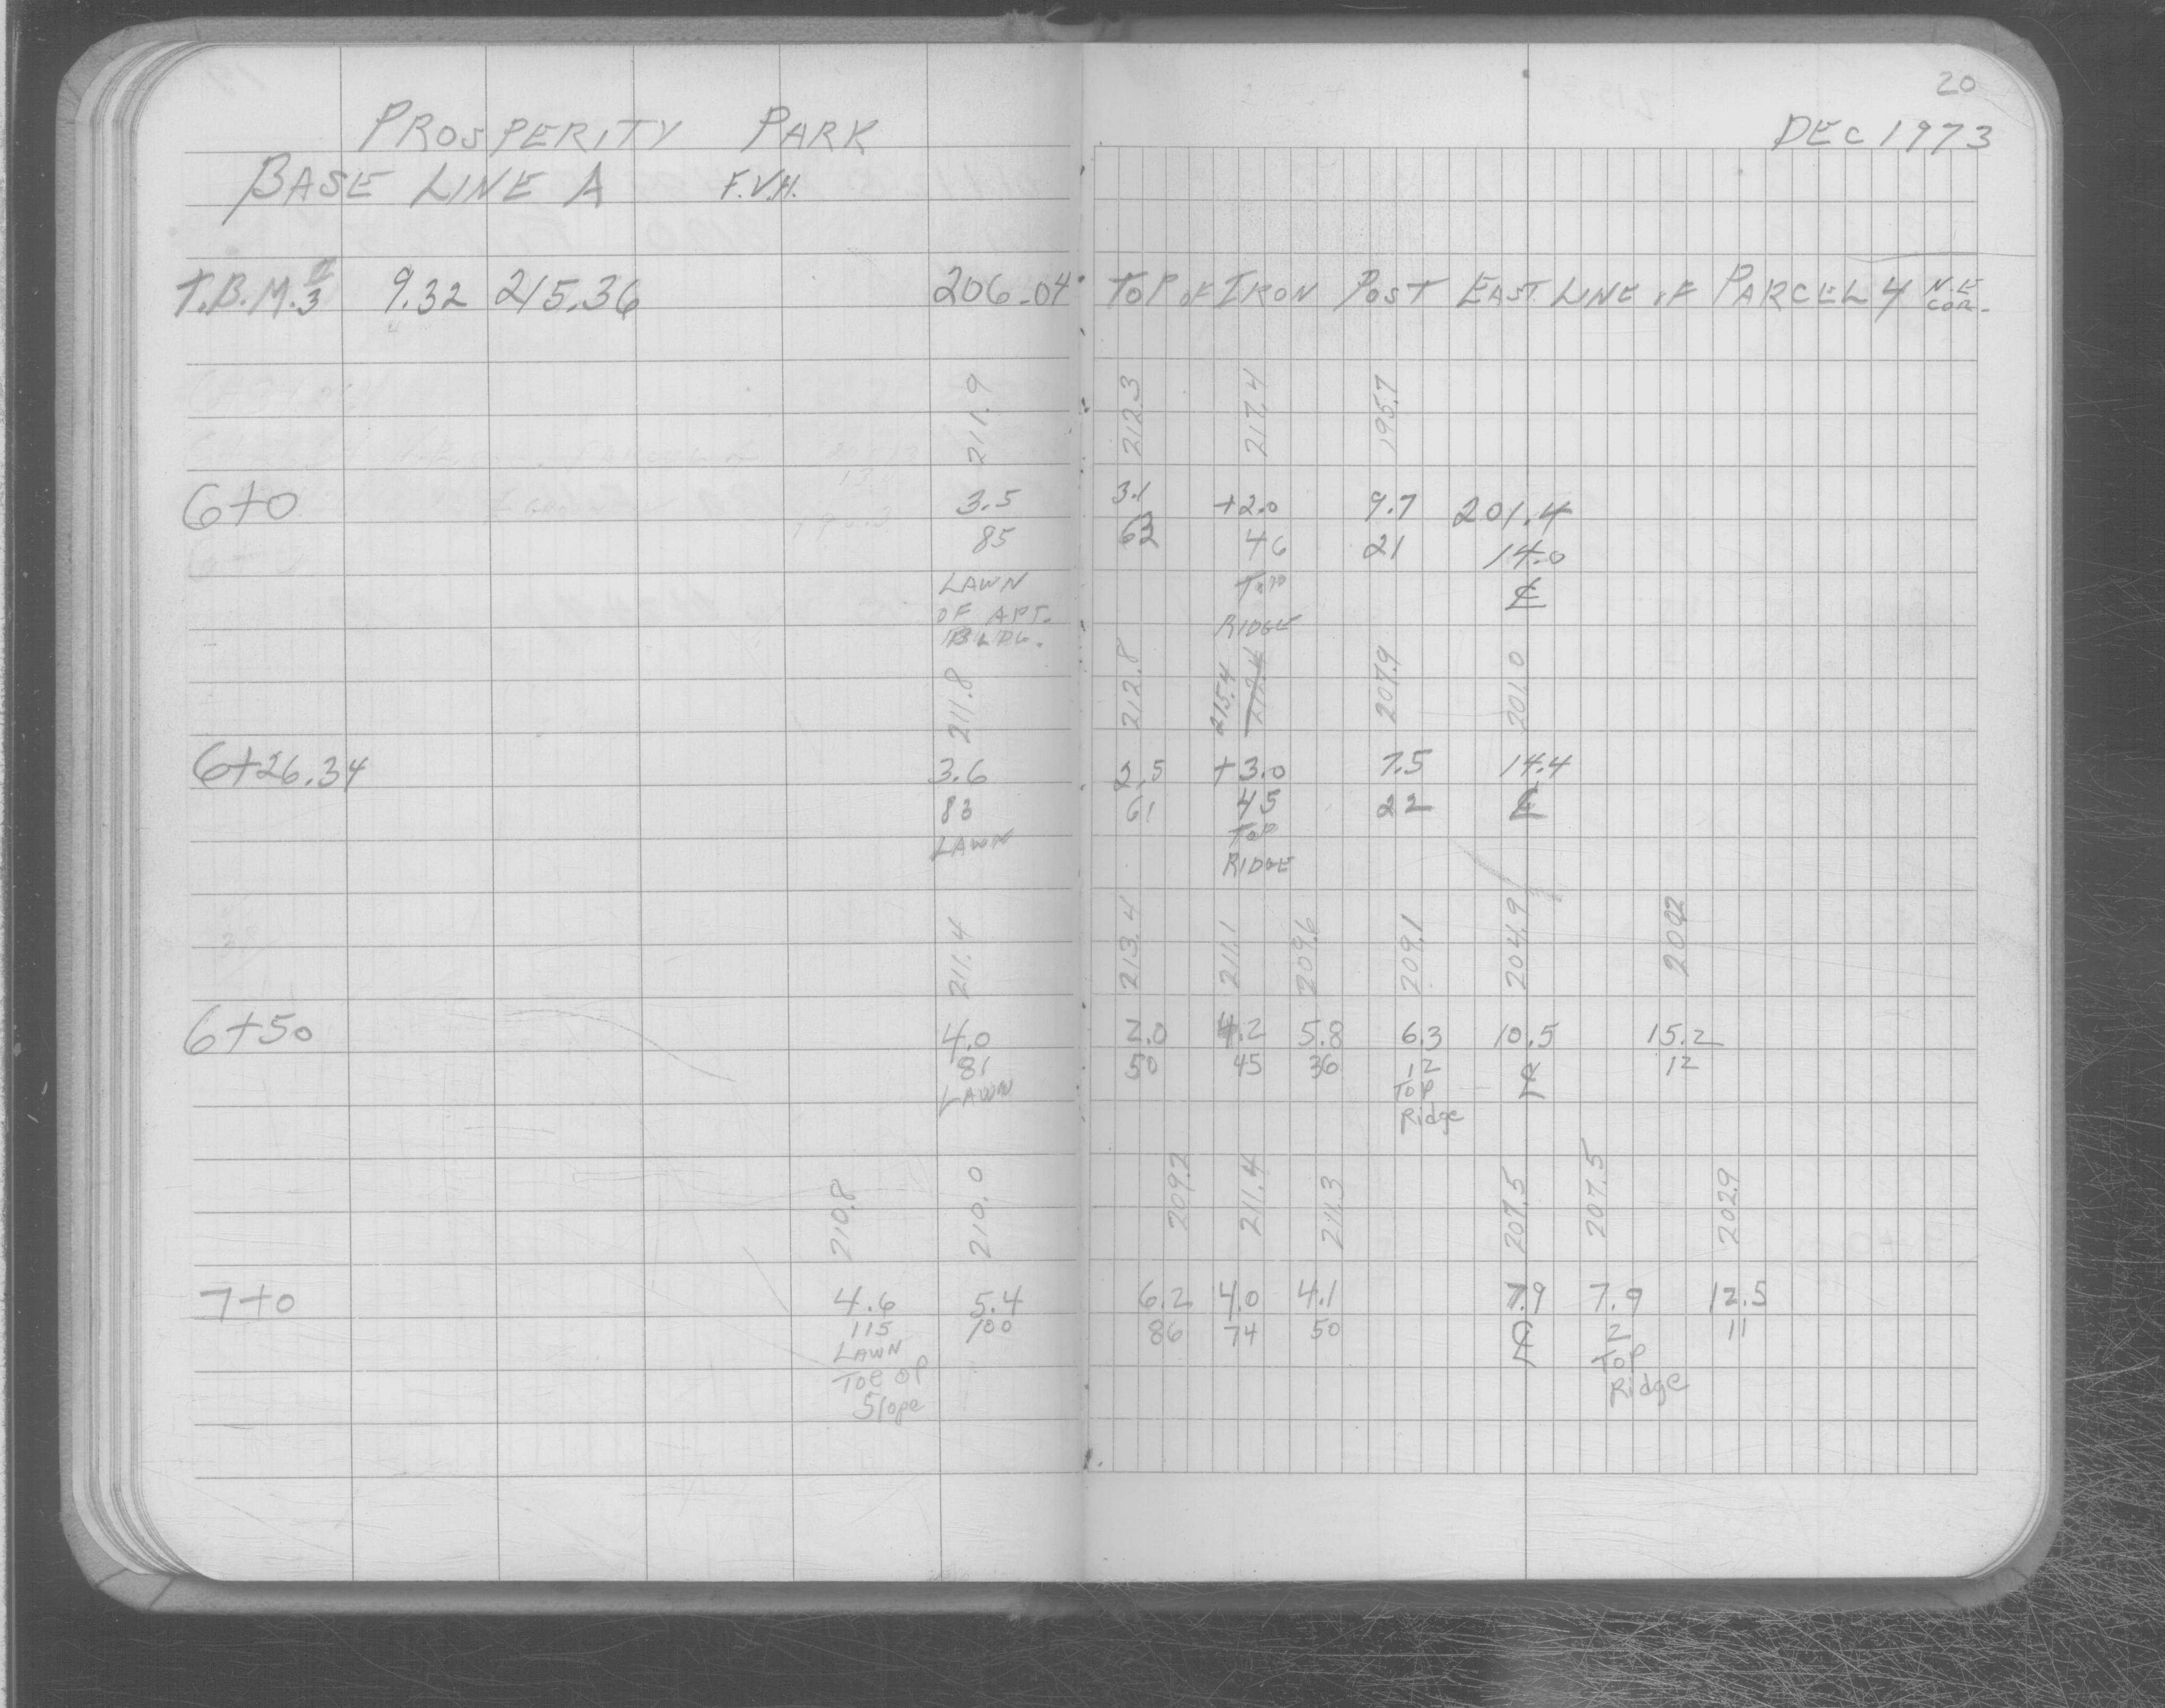 20
PROSPERITY PARK DEC 1973
BASE LINE A F.V.H.
T.B.M. #3 9.32 215.36 206.04 TOP OF IRON POST EAST LINE OF PARCEL 4 N.E COR.
211.9 212.3 217.4 195.7
6+0 3.5 3.1 +2.0 9.7 201.4
85 62 46 21 14.0
LAWN TOP ℄
OF APT. RIDGE
BLDG.
211.8 212.8 215.4 217.4 207.9 201.0
6+26.34 3.6 2.5 +3.0 7.5 14.4
83 61 45 22 ℄
LAWN TOP
RIDGE
211.4 213.4 211.1 209.6 209.1 204.9 200.2
6+50 4.0 2.0 4.2 5.8 6.3 10.5 15.2
81 50 45 36 12 ℄ 12
LAWN TOP
Ridge
210.8 210.0 209.2 211.4 211.3 207.5 207.5 202.9
7+0 4.6 5.4 6.2 4.0 4.1 7.9 7.9 12.5
115 100 86 74 50 ℄ 2 11
LAWN TOP
Toe OF Ridge
Slope